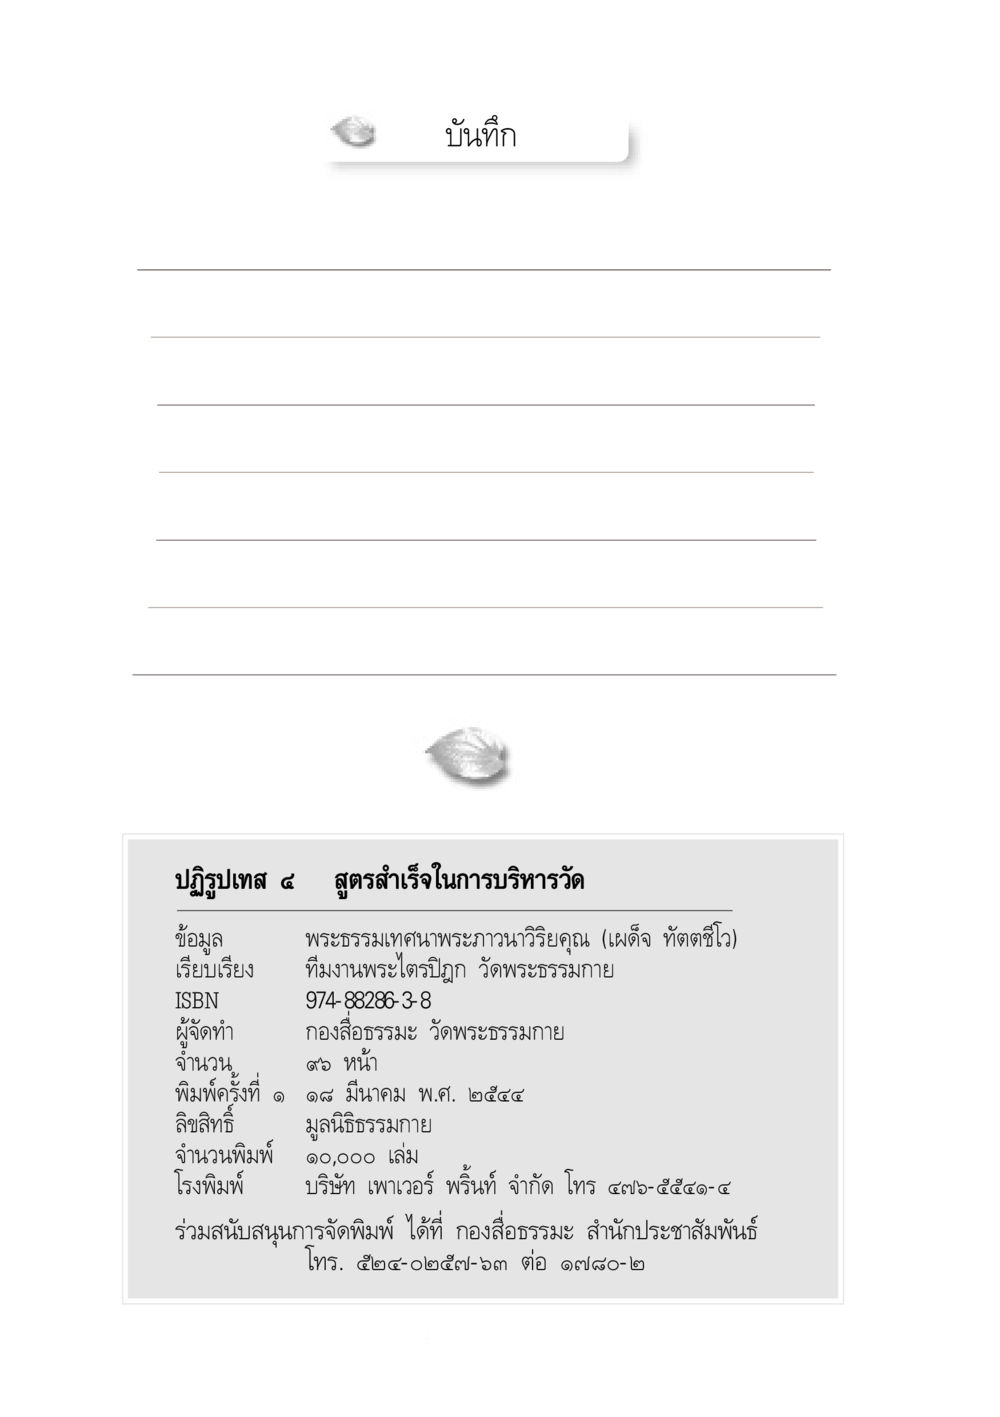 บันทึก
ปฏิรูปเทส ๔ สูตรสำเร็จในการบริหารวัด
ข้อมูล พระธรรมเทศนาพระภาวนาวิริยคุณ (เผด็จ ทัตตชีโว)
เรียบเรียง ทีมงานพระไตรปิฎก วัดพระธรรมกาย
ISBN 974-88286-3-8
ผู้จัดทำ กองสื่อธรรมะ วัดพระธรรมกาย
จำนวน ๙๖ หน้า
พิมพ์ครั้งที่ ๑ ๑๘ มีนาคม พ.ศ. ๒๕๔๔
ลิขสิทธิ์ มูลนิธิธรรมกาย
จำนวนพิมพ์ ๑๐,๐๐๐ เล่ม
โรงพิมพ์ บริษัท เพาเวอร์ พริ้นท์ จำกัด โทร ๔๗๖-๕๕๔๑-๔
ร่วมสนับสนุนการจัดพิมพ์ ได้ที่ กองสื่อธรรมะ สำนักประชาสัมพันธ์
โทร. ๕๒๔-๐๒๕๗-๖๓ ต่อ ๑๗๘๐-๒